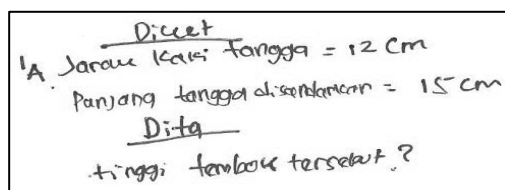 Diket
1A. Jarak kaki tangga = 12 cm
Panjang tangga disandarkan = 15 cm
Dita
tinggi tembok tersebut ?